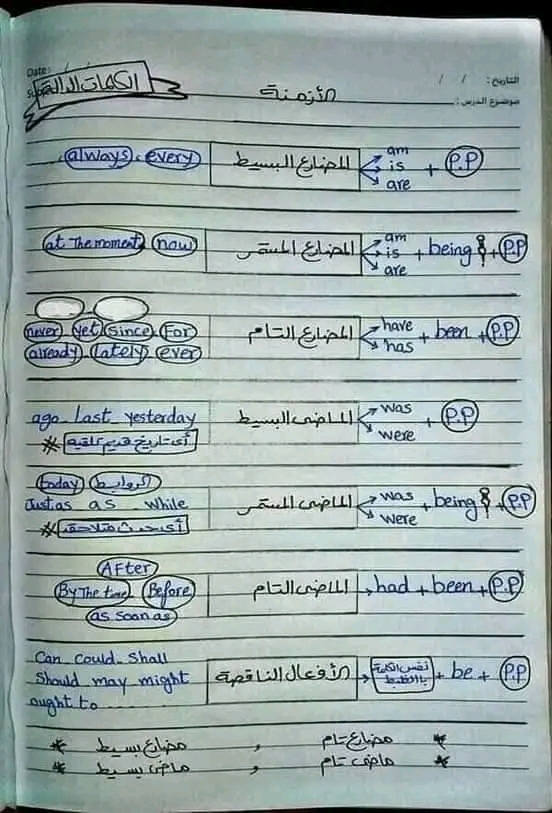 Date: / /
التاريخ: / /
الكلمات الدالة
الأزمنة
موضوع الدرس:
always, every | المضارع البسيط | am is are + P.P
at The moment, now | المضارع المستمر | am is are + being + P.P
never, yet, since, For | المضارع التام | have has + been + P.P
already, lately, ever
ago - Last - yesterday | الماضى البسيط | was were + P.P
* أى تاريخ قديم تلاقيه
today, الروابط | الماضى المستمر | was were + being + P.P
Just as - as - while
* أى حدث متلاحق
AFter | الماضى التام | had + been + P.P
By The time, Before
as soon as
Can - could - Shall | الأفعال الناقصة | نفس الكلمة بالظبط + be + P.P
Should - may - might
ought to
* مضارع تام , مضارع بسيط *
* ماضى تام , ماضى بسيط *